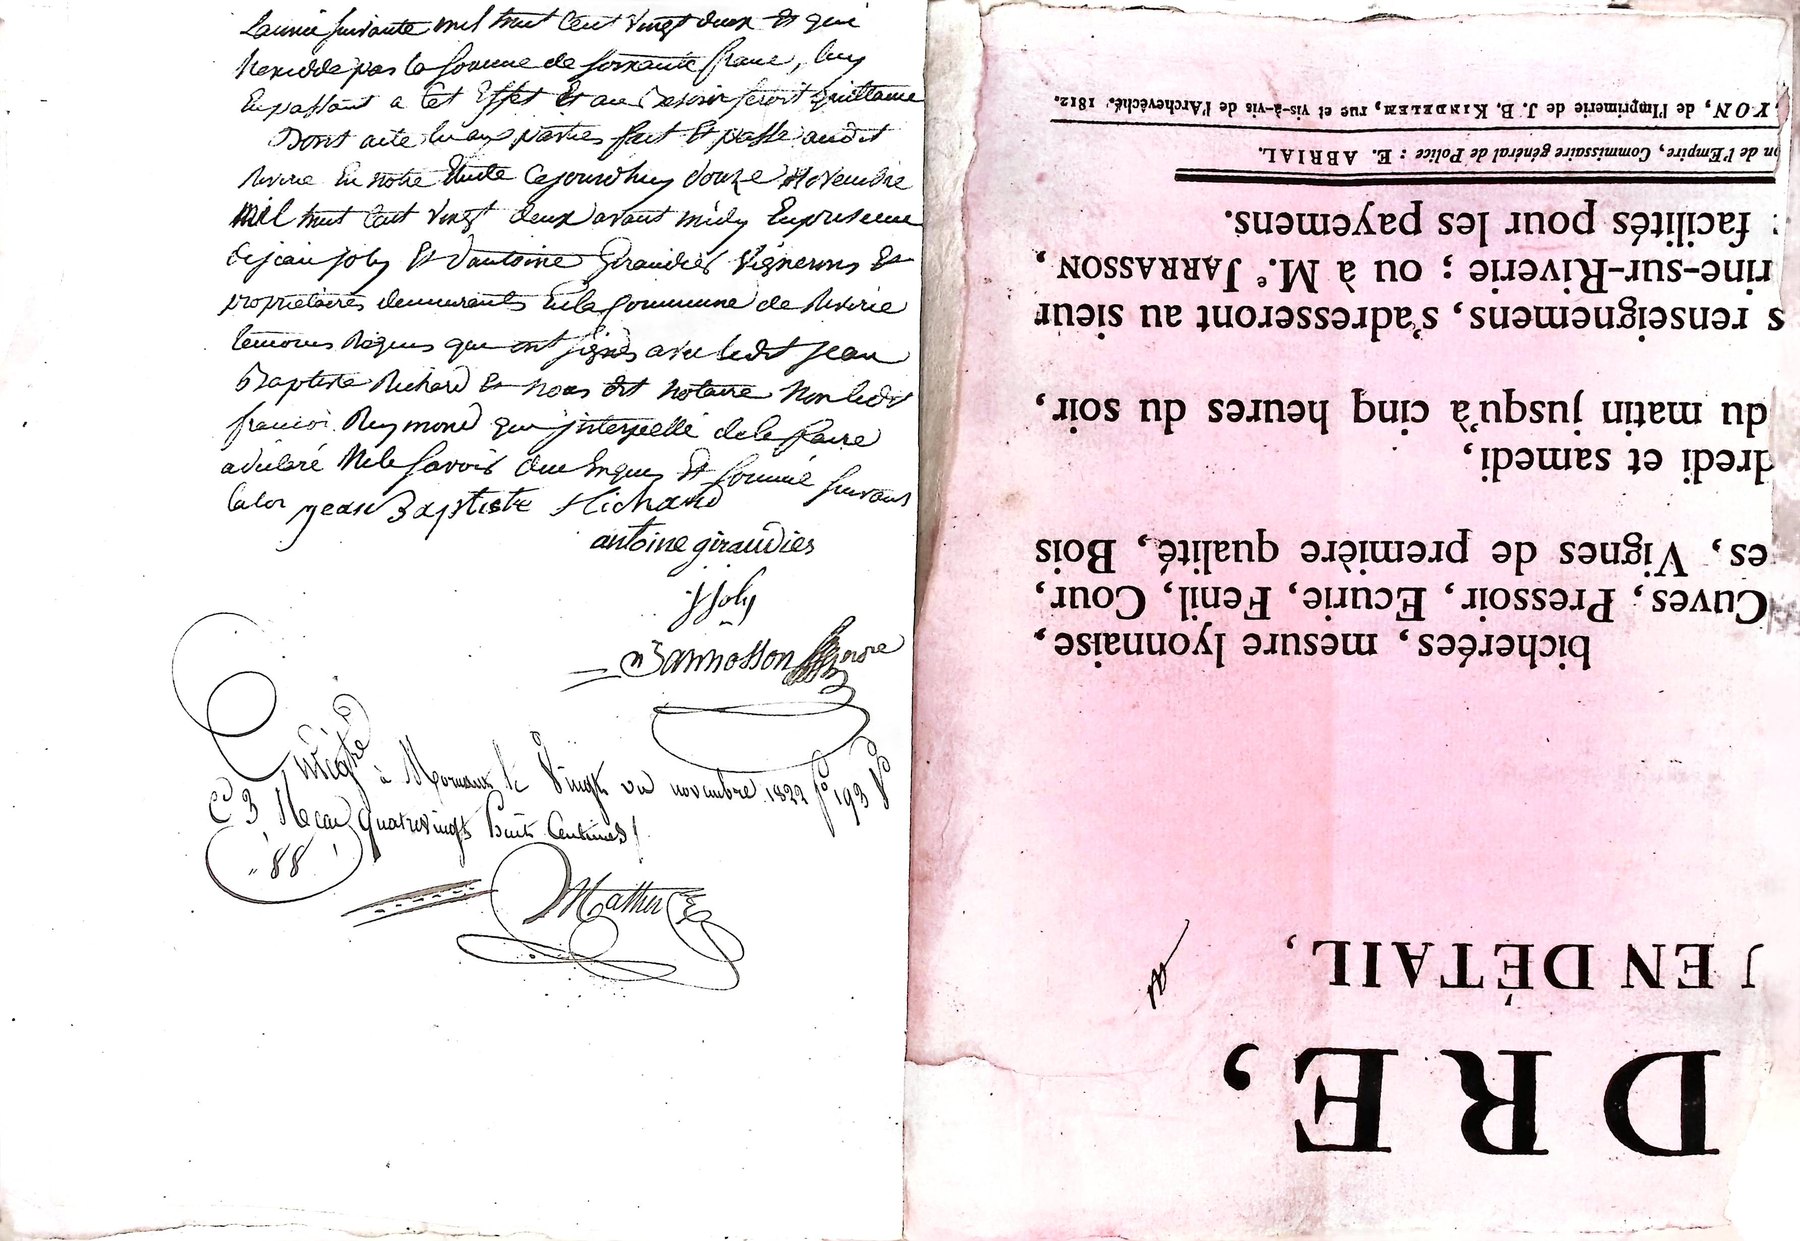 L'année suivante mil huit cent vingt deux et qui
n'excedde pas la somme de soixante franc, luy
En passant a Cet Effet Et au Besoin seroit quittance
Dont acte lu aux parties fait Et passé audit
Riverie En notre Etude Cejourdhuy douze Novembre
mil huit Cent vingt deux avant midy En presence
de jean joly Et d'antoine Giraudier Vignerons Et
proprietaires demeurants En la Commune de Riverie
temoins Requis qui ont signés avec ledit Jean
Baptiste Richard Et nous dit notaire Non ledit
francois Reymond qui interpellé de le faire
a declaré Ne le savoir de ce Enquis Et sommé suivant
la loi jean Baptiste Richard
antoine giraudier
J Joly
Enregtré à Mornant le Vingt un novembre 1822 fo 193 Vo
Cd 3 Recu quatrevingt huit Centimes
88
Mathe
DRE,
EN DÉTAIL,
bicherées, mesure lyonnaise,
Cuves, Pressoir, Ecurie, Fenil, Cour,
es, Vignes de première qualité, Bois
dredi et samedi,
du matin jusqu'à cinq heures du soir,
s renseignemens, s'adresseront au sieur
rine-sur-Riverie ; ou à M.e JARRASSON,
facilités pour les payemens.
on de l'Empire, Commissaire général de Police : E. ABRIAL.
YON, de l'Imprimerie de J. B. KINDELEM, rue et vis-à-vis de l'Archevêché. 1812.